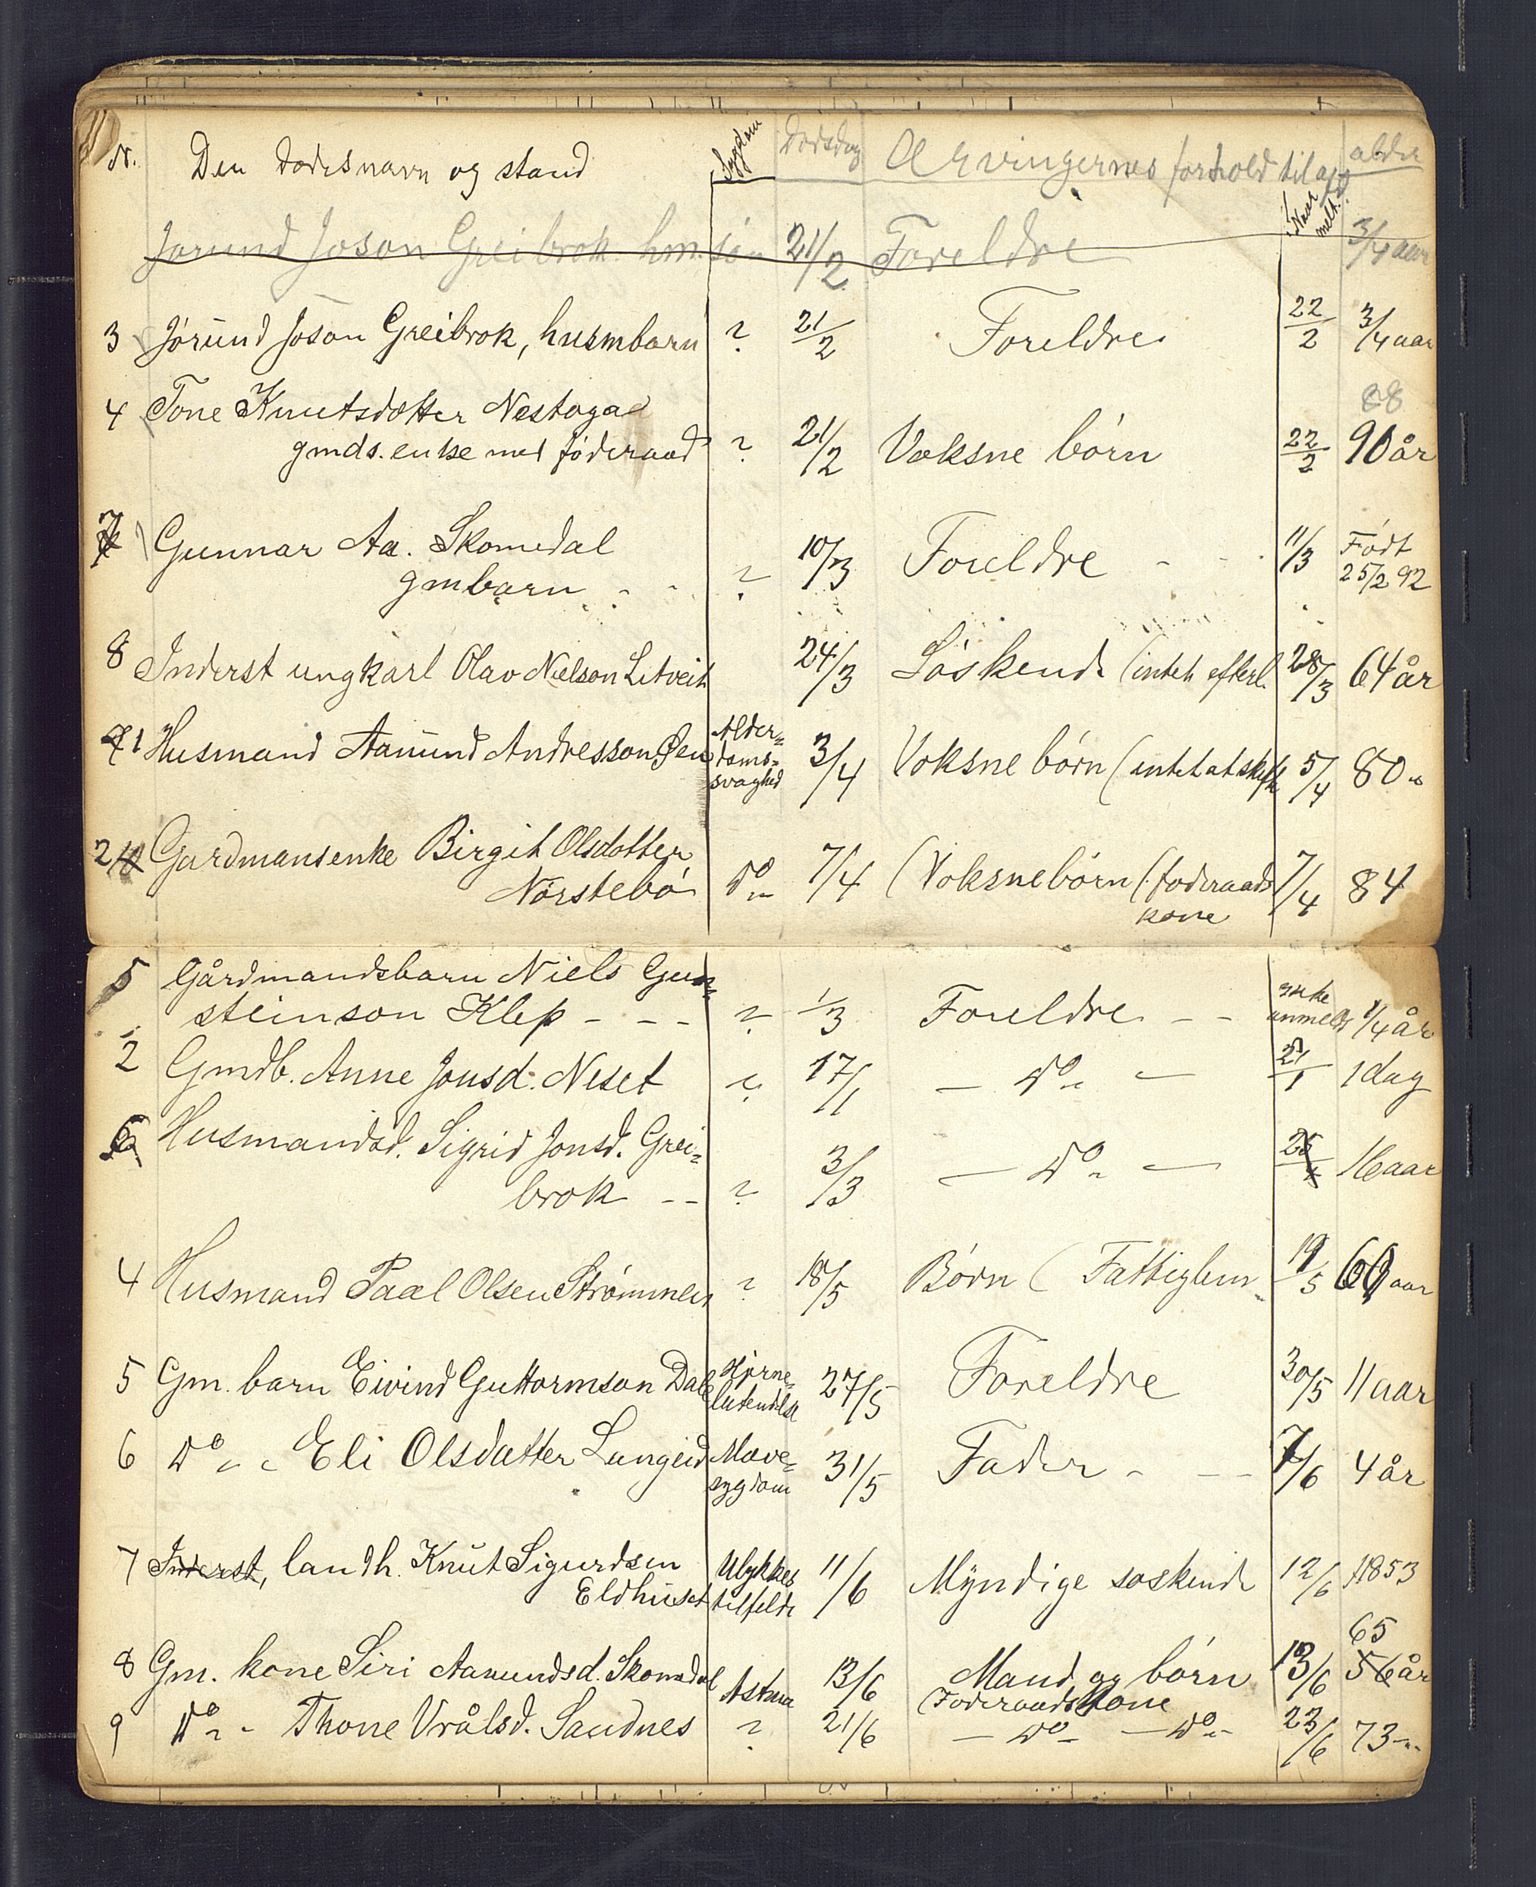 N. Den dødes navn og stand Sygdom Dødsdag Arvingernes forhold til afd. Naar melt. alder
Jørund Joson Greibrok hm. søn 21/2 Foreldre 3/4 aar
3 Jørund Joson Greibrok, husmbarn ? 21/2 Foreldre 22/2 3/4 aar
88
4 Tone Knutsdatter Nestogae
gmds. enke med føderaad ? 21/2 Voksne børn 22/2 90 år
7 Gunnar Aa. Skomedal 10/3 Foreldre - - 11/3 Født
gmbarn - - ? 25/2 92
8 Inderst ungkarl Olav Nielson Litveit 24/3 Søskende (intet efterl. 28/3 64 år
1 Husmand Aamund Andresson Øen Alder-
doms-
svaghed 3/4 Voksne børn (intet at skifte 5/4 80 "
2 Gardmansenke Birgit Olsdatter
Nørstebø Do " 7/4 (Voksne børn (føderaads
kone 7/4 84
5 Gårdmandsbarn Niels Gun-
steinson Klep - - - ? 1/3 Foreldre - - ikke
anmeldt 1/4 år
2 Gmdb. Anne Jonsd. Neset ? 17/1 - Do " - 21/1 1 dag
6 Husmandsd. Sigrid Jonsd. Grei-
brok - - ? 3/3 - Do " - 16 aar
4 Husmand Paal Olsen Strømmen ? 18/5 Børn (Fattiglem 19/5 60 aar
5 Gm. barn Eivind Guttormson Dale Hjerne-
betendelse 27/5 Foreldre 30/5 11 aar
6 Do " " Eli Olsdatter Langeid Mave-
sygdom 31/5 Fader - - - 7/6 4 år
7 Inderst, landh. Knut Sigurdsen
Eldhuset Ulykkes
tilfelde 11/6 Myndige søskende 12/6 1853
65
8 Gm. kone Siri Aamundsd. Skomedal Astma 13/6 Mand og børn 13/6 56 år
Føderaadskone
9 Do " - Thone Vrålsd. Sandnes ? 21/6 - Do - - Do " - 23/6 73 - "